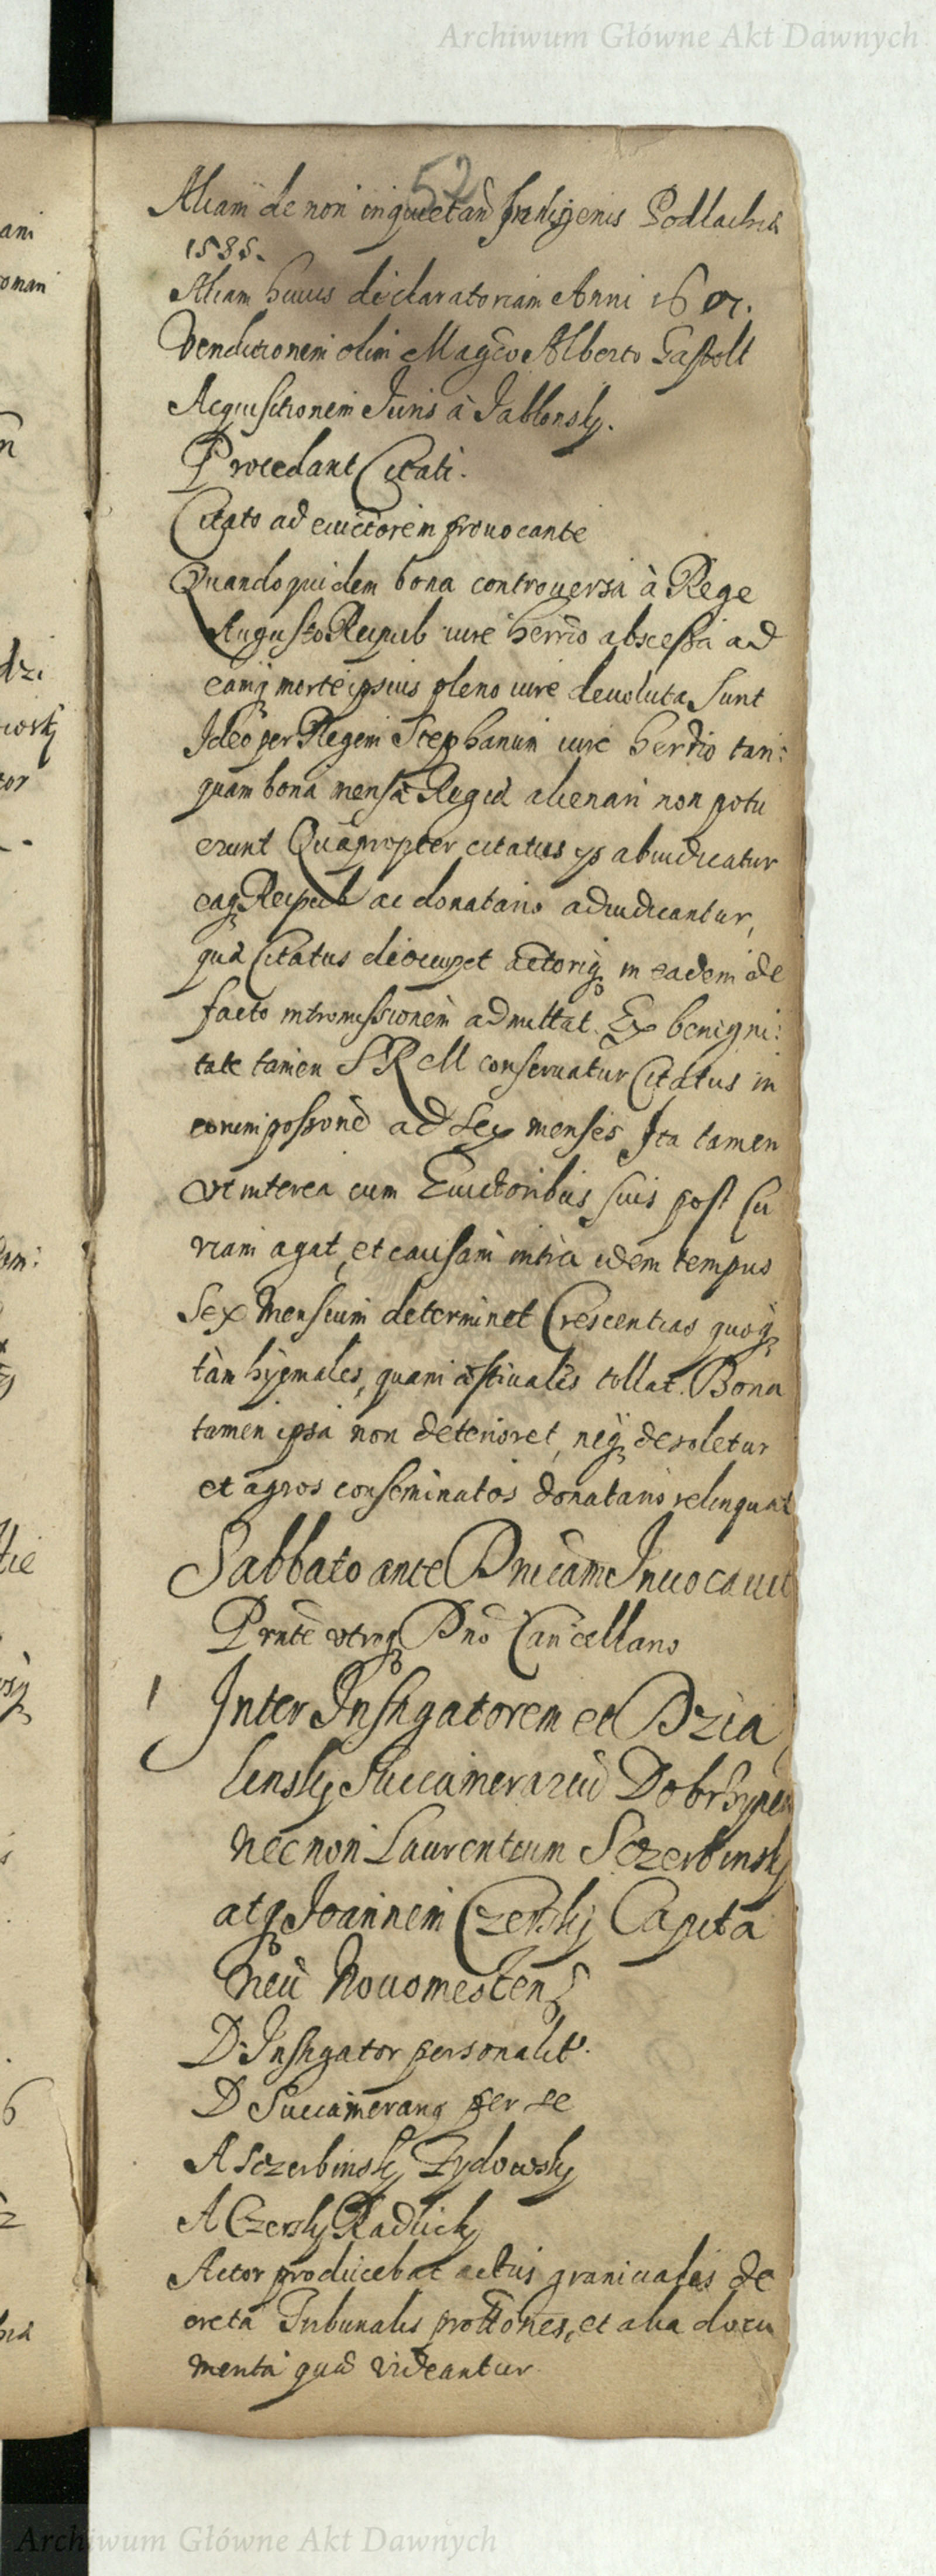 Archiwum Główne Akt Dawnych
52
Aliam de non inquietand Indigenis Podlachiæ
1585.
Aliam huius declaratoriam Anni 1607.
Venditionem olim Magco Alberto Gastolt
Acquisitionem Juris à Jablonsky.
Procedant Citati.
Citato ad euictorem prouocante
Quandoquidem bona controuersa à Rege
Augusto Reipub iure herrio abscessa ad
eamq morte ipsius pleno iure deuoluta sunt
Ideo per Regem Stephanum iure herdio tan:
quam bona mensæ Regiæ alienari non potu
erunt Quapropter citatus ys abiudicatur
eaq Reipub ac donatario adiudicantur,
quæ Citatus deoccupet actoriq in eadem de
facto intromissionem admittat. Ex benigni:
tate tamen S R M conseruatur Citatus in
eorum possione ad sex menses Ita tamen
vt interea cum Euictoribus suis post Cu
riam agat, et causam intra idem tempus
Sex mensium determinet Crescentias quoq
tàm hyemales, quam æstiuales tollat. Bona
tamen ipsa non deterioret, neq desoletur
et agros conseminatos donatario relinquat
Sabbato ante Dnicam Inuocauit
Prnte vtroq Dno Cancellario
Inter Instigatorem et Dzia
lensky Succamerariu Dobrzynen
necnon Laurentium Sczerbinsky
atq Joannem Czersky Capita
neu Nouomesten
D. Instigator personalit.
D Succamerariq per se
A Sczerbinsky Zydowsky
A Czersky Radlicky
Actor producebat actus graniciales de
creta Tribunalis prottones, et alia docu
menta quæ videantur
Archiwum Główne Akt Dawnych